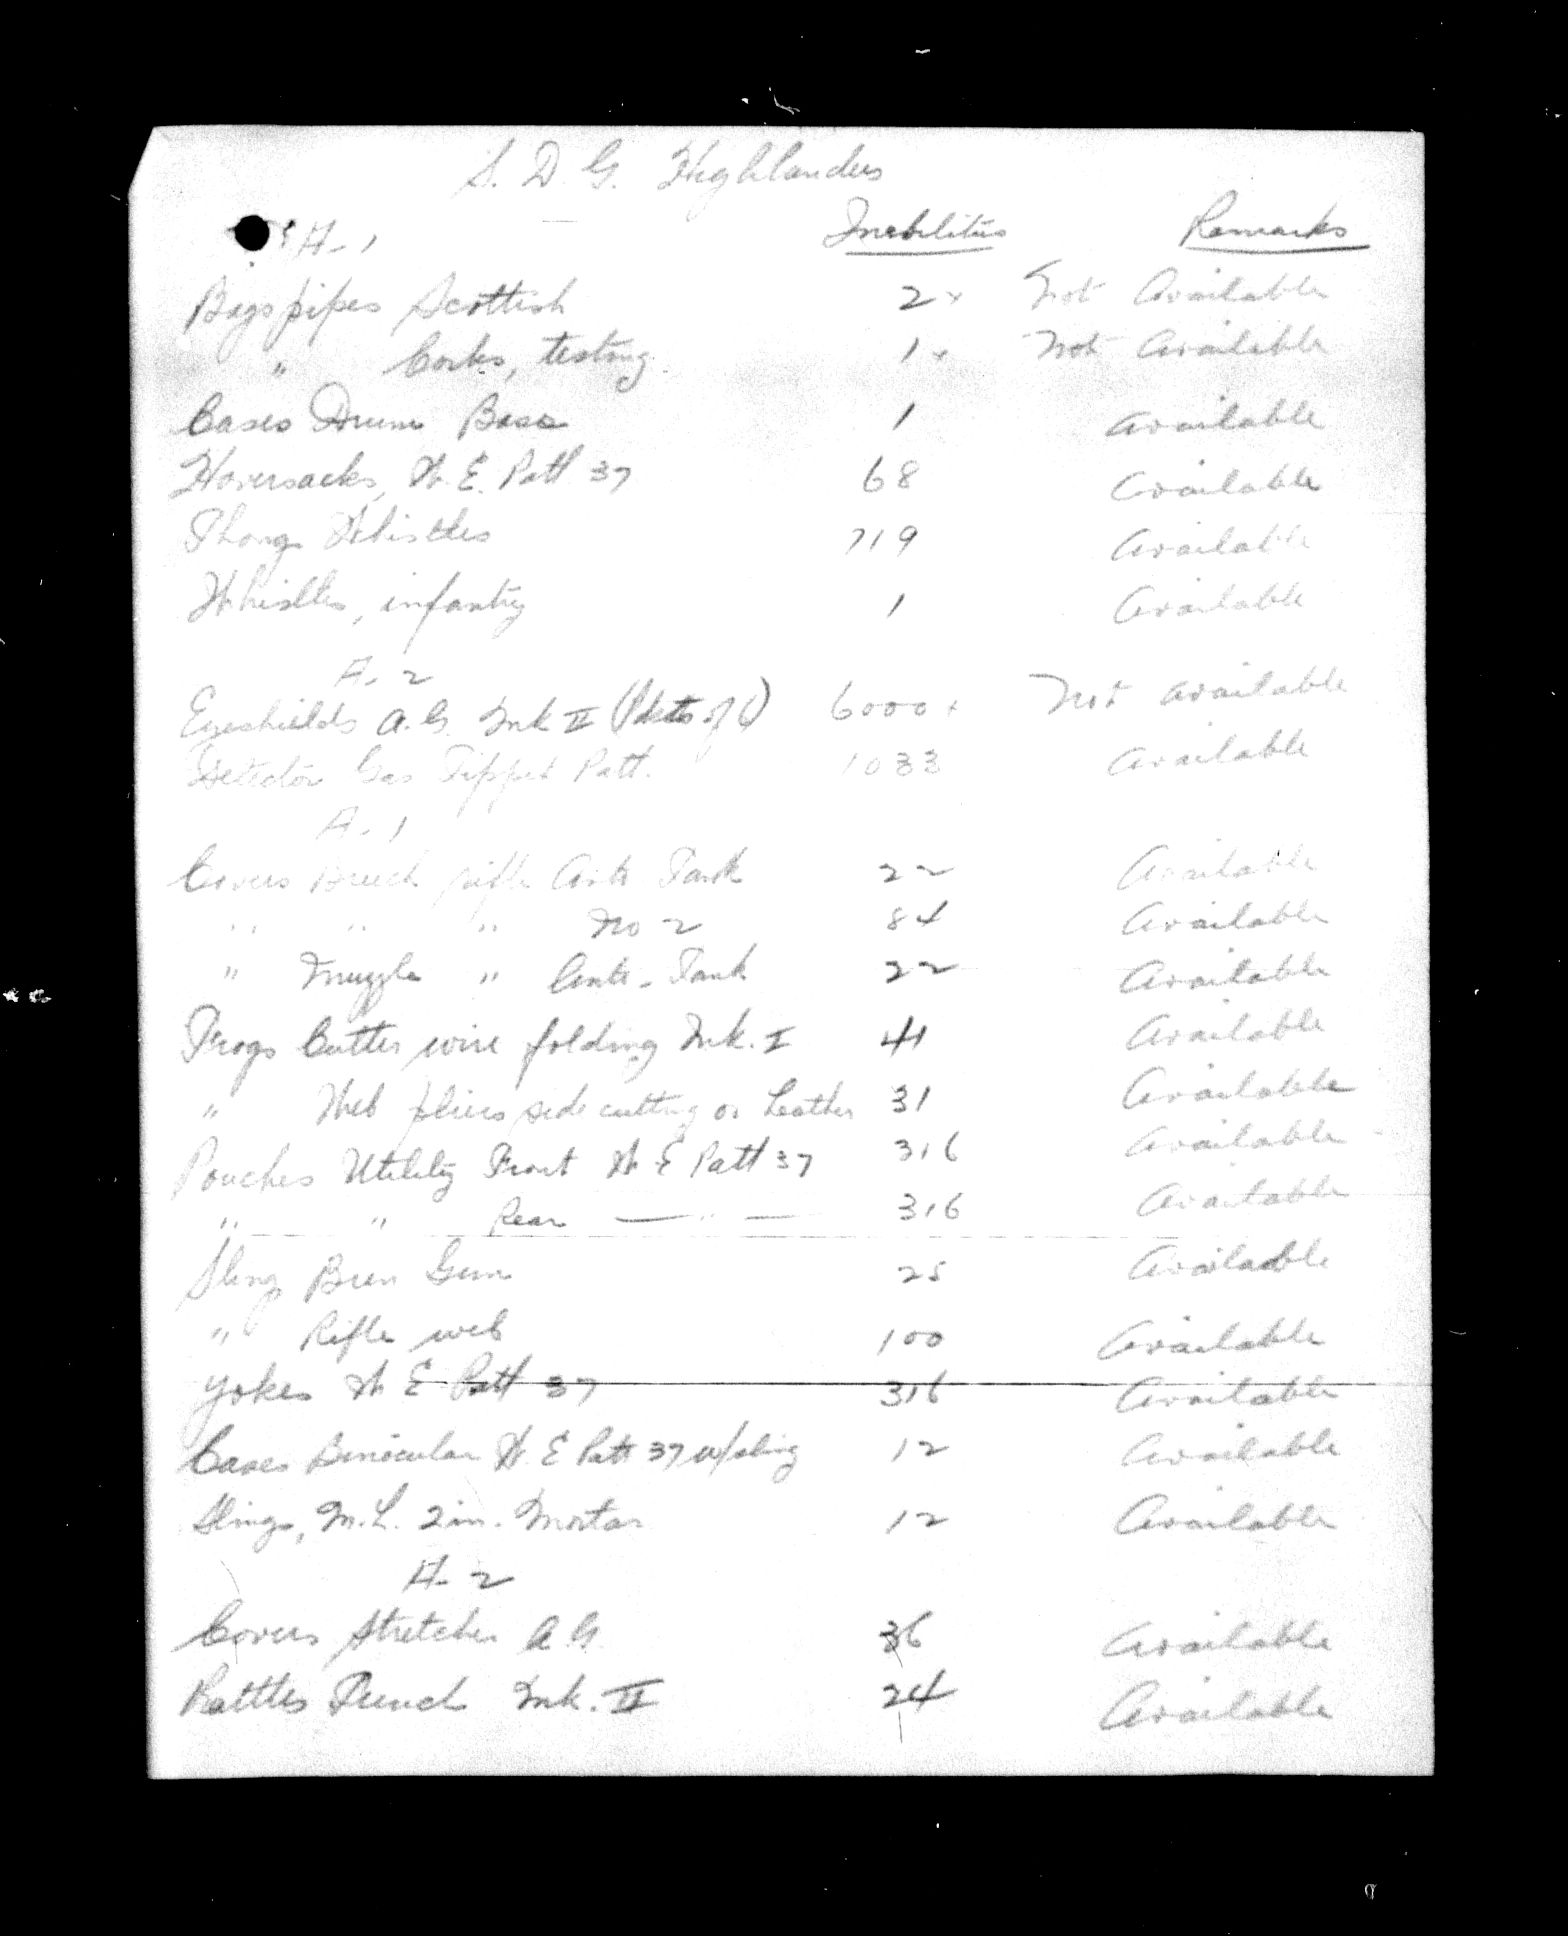 S. D. G. Highlanders
A-1 Inabilities Remarks
Bagspipes Scottish 2x Not Available
" Corks, testing 1x Not Available
Cases Drum Bass 1 Available
Haversacks, W. E. Patt 37 68 Available
Thongs Whistles 719 Available
Whistles, infantry 1 Available
A-2
Eyeshields A.G. Mk II (Pkts of 6) 6000x Not Available
Detector Gas Patt. 1033 Available
A-1
Covers Breech rifle Anti Tank 22 Available
" " " No 2 84 Available
" Muzzle " Anti-Tank 22 Available
Frogs Cutter wire folding Mk. I 41 Available
" Web pliers side cutting or Leather 31 Available
Pouches Utility Front W E Patt 37 316 Available
" " Rear — " — 316 Available
Sling Bren Gun 25 Available
" Rifle web 100 Available
Yokes W E Patt 37 316 Available
Cases Binocular W. E Patt 37 w/sling 12 Available
Slings, M.L. 2 in. Mortar 12 Available
A-2
Covers Stretcher A.G. 36 Available
Rattles Trench Mk. II 24 Available